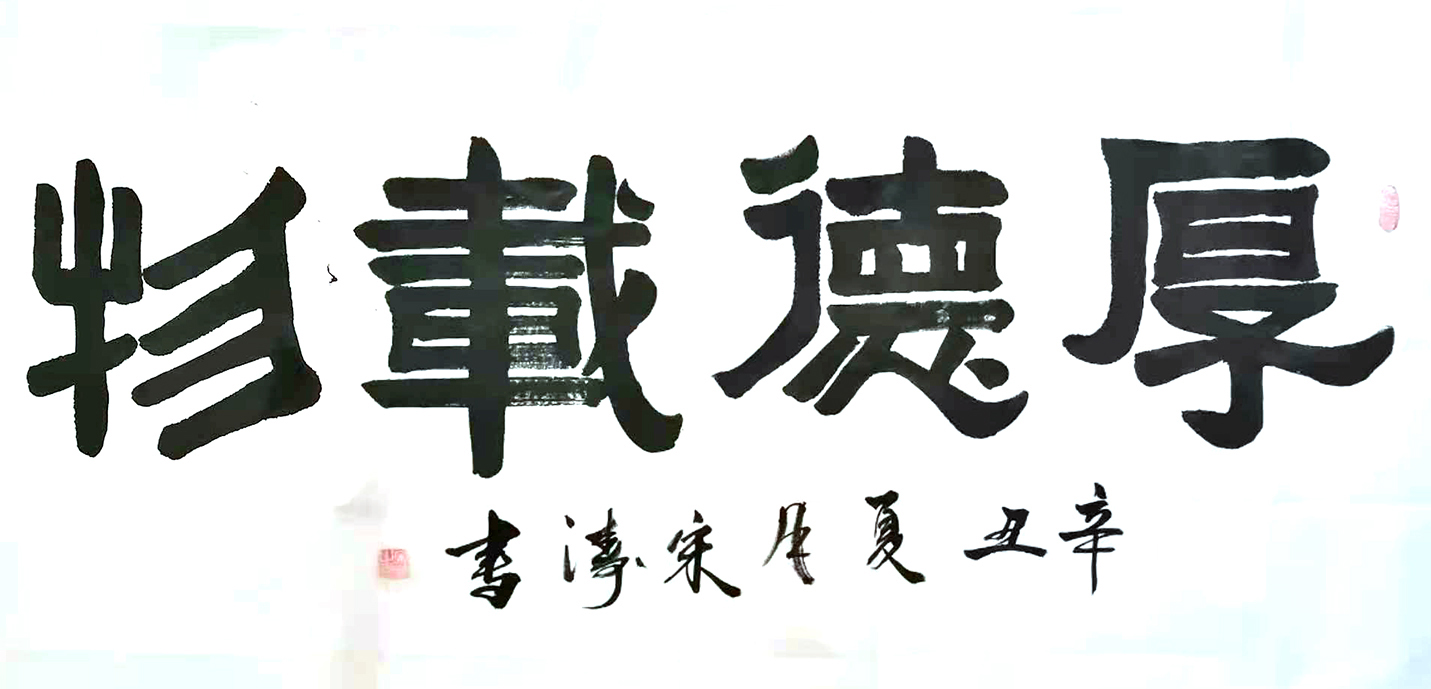 厚德載物
辛丑夏月宋濤書